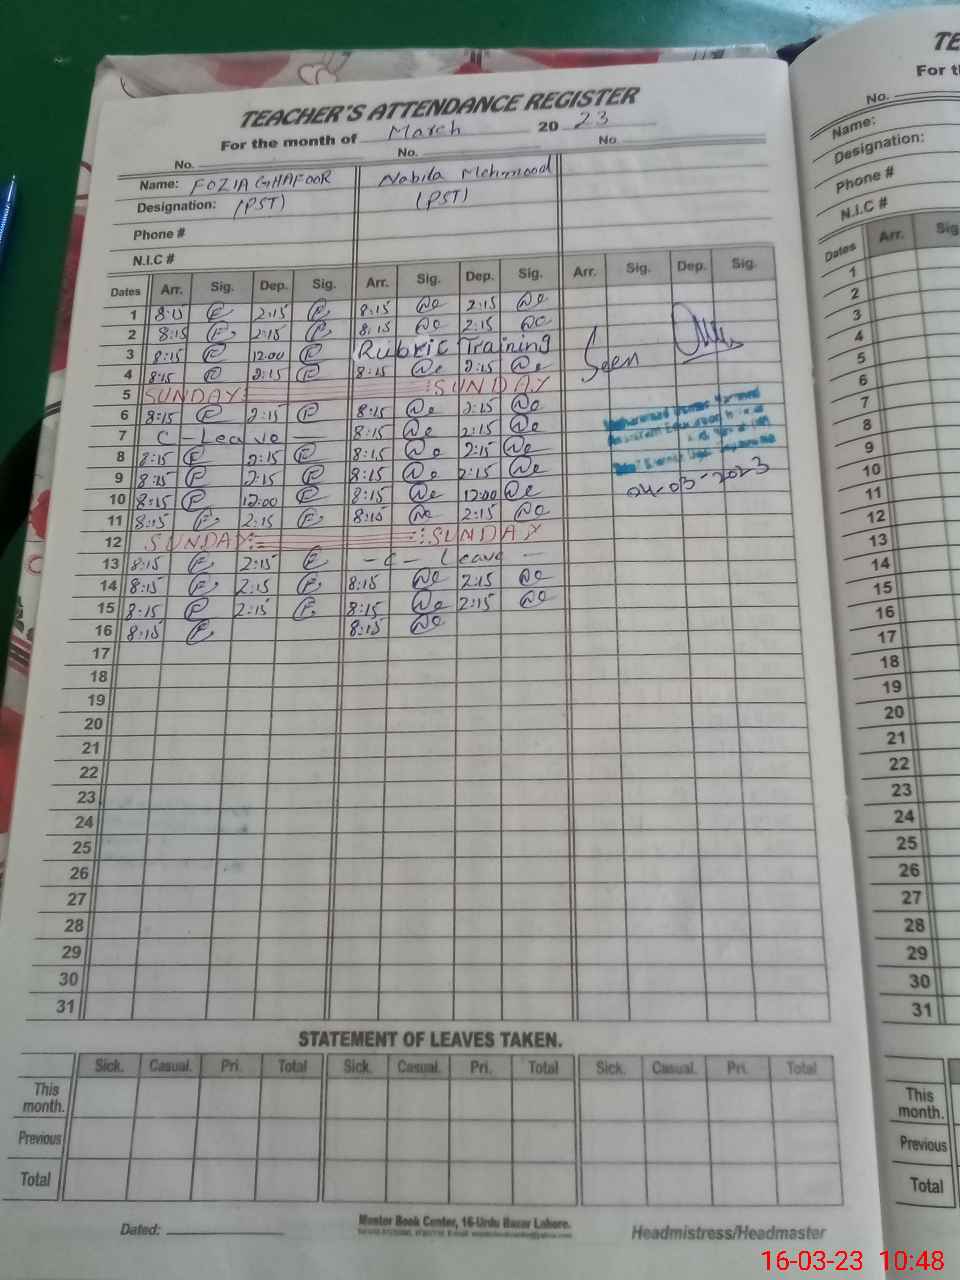 TEACHER'S ATTENDANCE REGISTER
For the month of March 20 23
No. No. No.
Name: FOZIA GHAFOOR Nabila Mehmood
Designation: (PST) (PST)
Phone #
N.I.C #
Dates Arr. Sig. Dep. Sig. Arr. Sig. Dep. Sig. Arr. Sig. Dep. Sig.
1 8:15 2:15 8:15 2:15
2 8:15 2:15 8:15 2:15
3 8:15 12:00 Rubric Training
4 8:15 2:15 8:15 2:15 Seen
5 SUNDAY SUNDAY
6 8:15 2:15 8:15 2:15
7 C - Leave 8:15 2:15
8 8:15 2:15 8:15 2:15
9 8:15 2:15 8:15 2:15
10 8:15 12:00 8:15 12:00 04-03-2023
11 8:15 2:15 8:15 2:15
12 SUNDAY SUNDAY
13 8:15 2:15 - C - Leave -
14 8:15 2:15 8:15 2:15
15 8:15 2:15 8:15 2:15
16 8:15 8:15
17
18
19
20
21
22
23
24
25
26
27
28
29
30
31
STATEMENT OF LEAVES TAKEN.
Sick. Casual. Pri. Total Sick. Casual. Pri. Total Sick. Casual. Pri. Total
This month.
Previous
Total
Mentor Book Center, 16-Urdu Bazar Lahore.
Dated: Headmistress/Headmaster
TE
For t
No.
Name:
Designation:
Phone #
N.I.C #
Dates Arr. Sig
1
2
3
4
5
6
7
8
9
10
11
12
13
14
15
16
17
18
19
20
21
22
23
24
25
26
27
28
29
30
31
This month.
Previous
Total
16-03-23 10:48